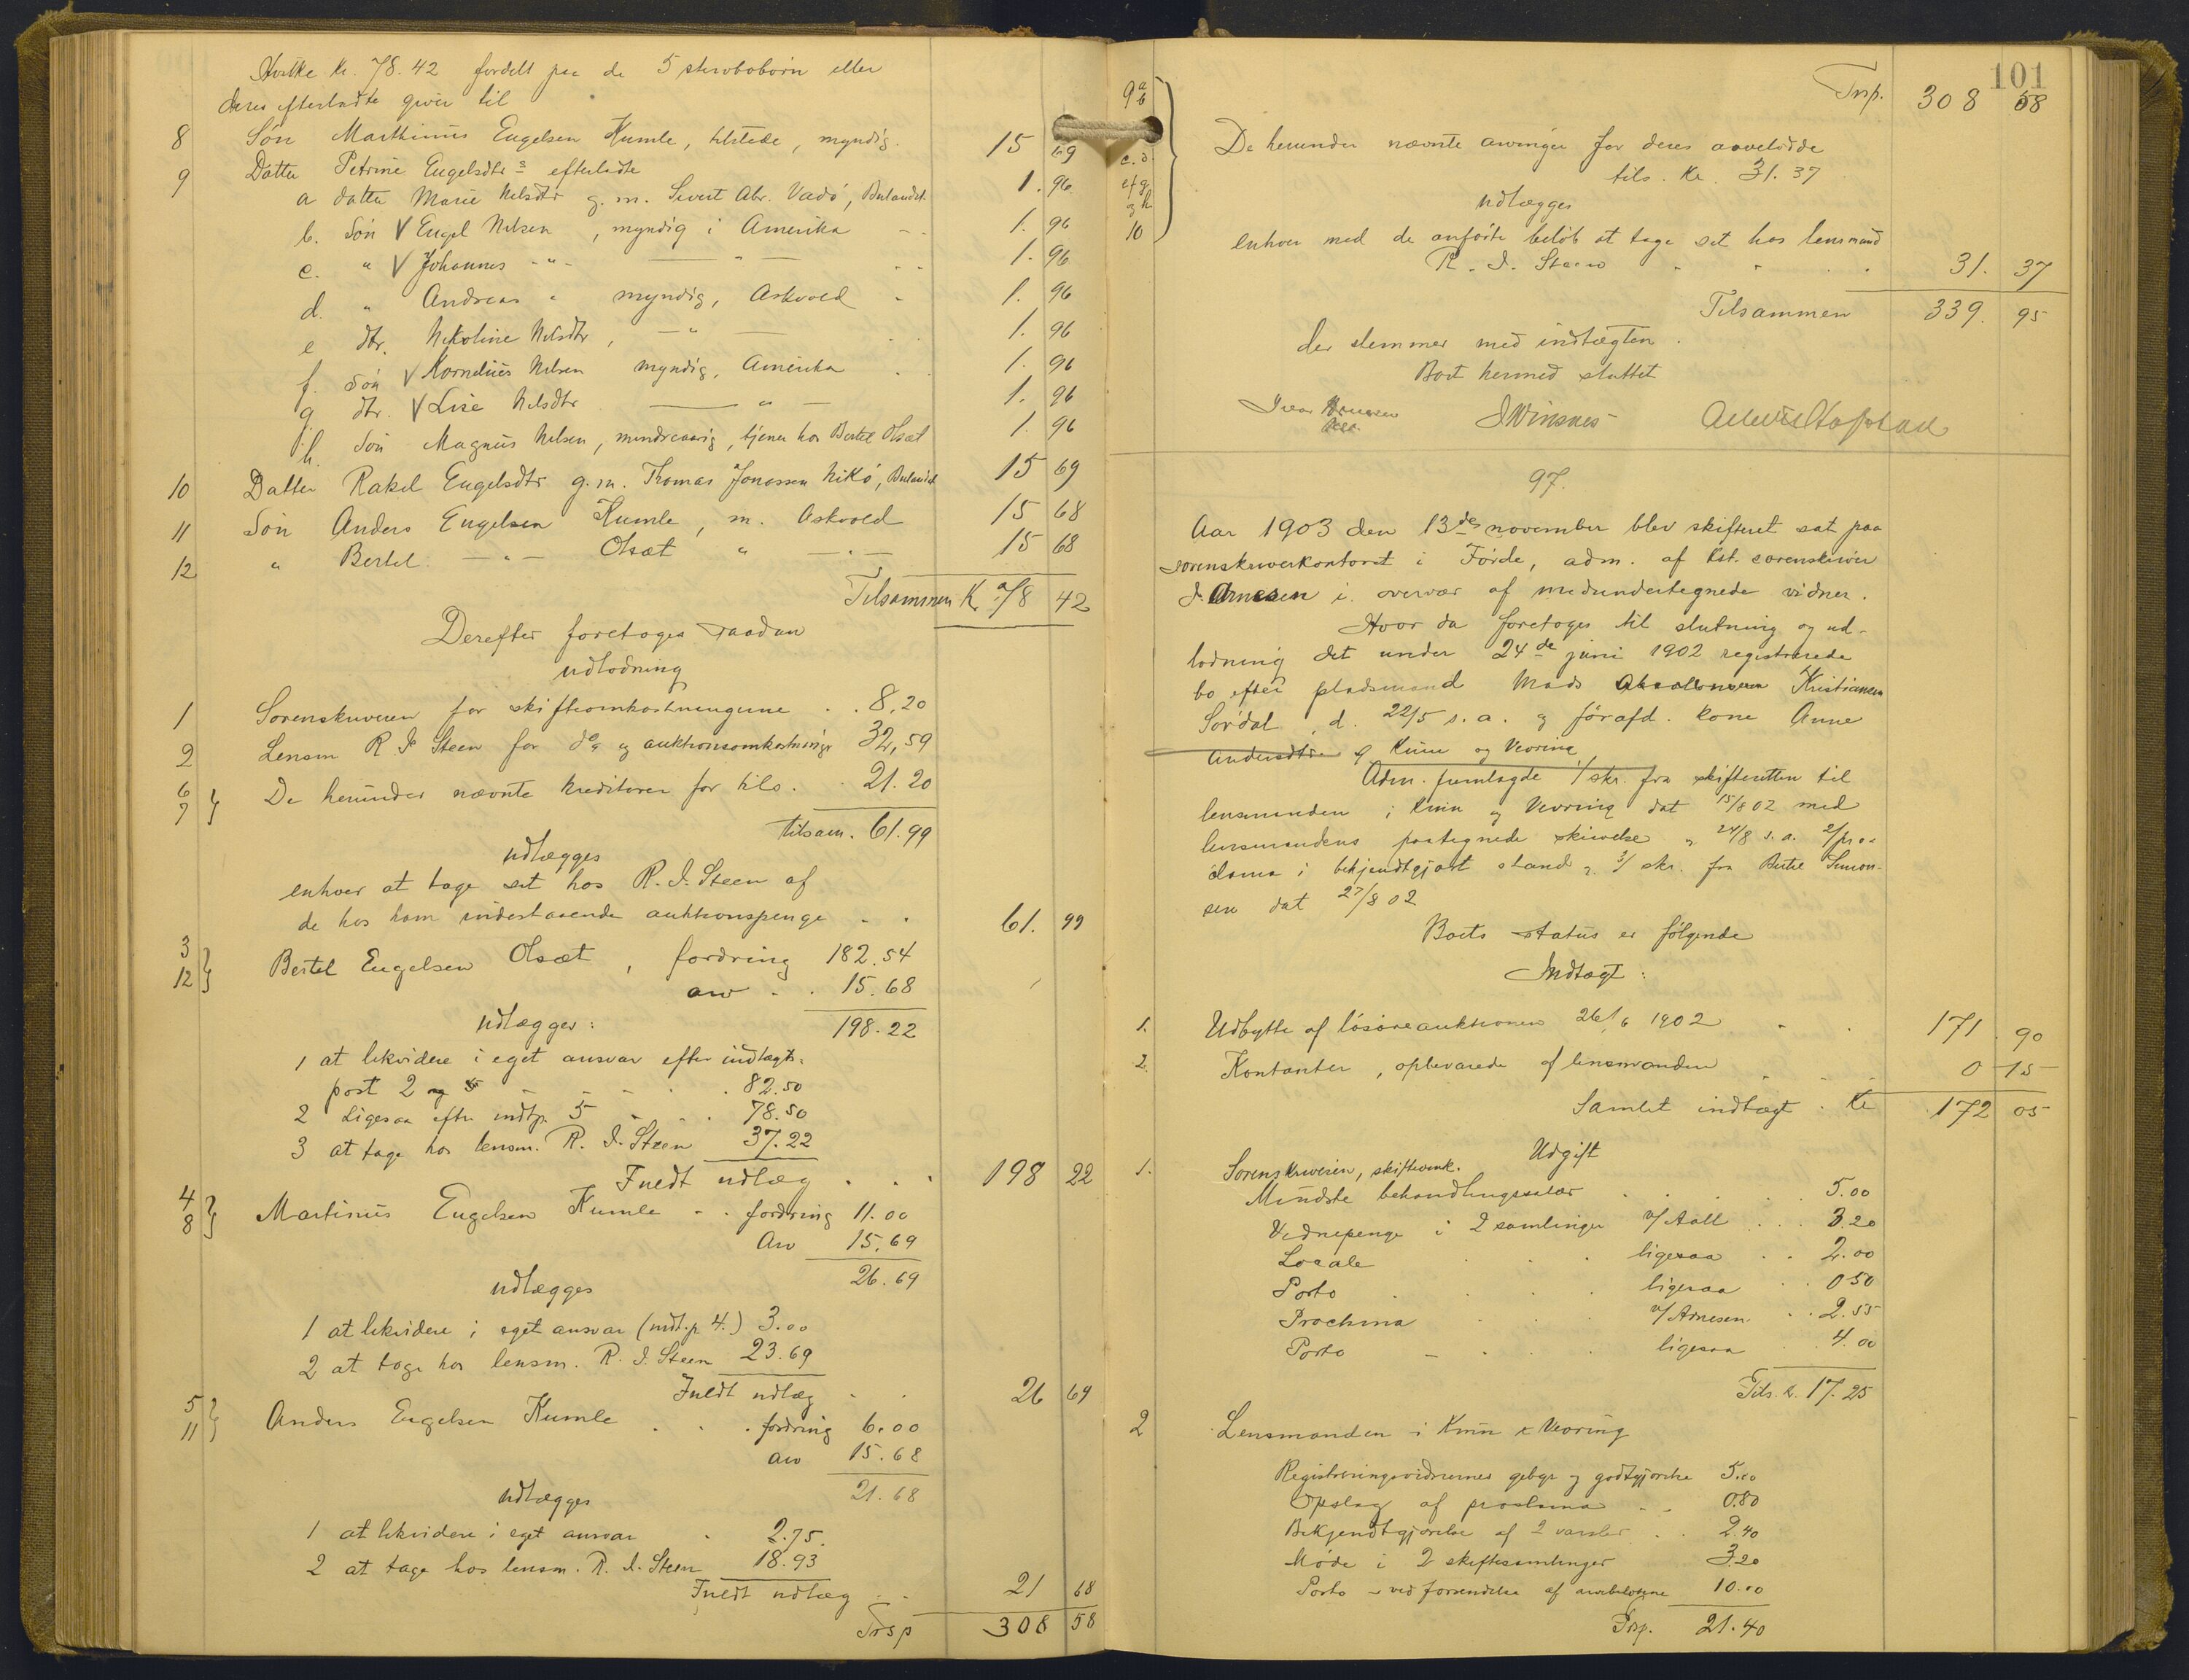 Hvilke kr. 78.42 fordelt paa de 5 stervbobørn eller
deres efterladte giver til
8 Søn Marthinus Engelsen Kumle, tilstede, myndig. 15 69
9 Datter Petrine Engelsdtrs efterladte
a datter Marie Nelsdtr g. m. Sivert Abr. Vadø, Bulandet 1. 96
b. Søn V Engel Nelsen, myndig i Amerika 1. 96
c. " V Johannes -"- —"— 1. 96
d. " Andreas " myndig, Askvold 1. 96
e dtr. Nikoline Nelsdtr, —"— 1. 96
f. Søn V Kornelius Nelsen myndig, Amerika 1. 96
g dtr. V Lise Nelsdtr —"— 1. 96
h. Søn Magnus Nelsen, mindreaarig, tjener hos Bertel Olsæt 1. 96
10 Datter Rakel Engelsdtr g. m. Thomas Jonassen Nikø, Bulandet 15 69
11 Søn Anders Engelsen Kumle, m. Askvold 15 68
12 " Bertel —"— Olsæt " —"— 15 68
Tilsammen K. 78 42
Derefter foretoges saadan
udlodning
1 Sorenskriveren for skifteomkostningerne . . 8,20
2 Lensm R I Steen for do og auktionsomkostninger 32,59
6 7 } De herunder nævnte kreditorer for tils. 21.20
tilsam. 61.99
udlægges
enhver at tage sit hos R. I. Steen af
de hos ham indestaaende auktionspenge . . 61. 99
3 12 } Bertel Engelsen Olsæt, fordring 182.54
arv . . 15.68
udlægges: 198.22
1 at likvidere i eget ansvar efter indtægts-
post 2 82.50
2 Ligesaa efter indtp. 5 78.50
3 at tage hos lensm. R. I. Steen 37.22
Fuldt udlæg . . . 198 22
4 8 } Martinus Engelsen Kumle . . fordring 11.00
Arv 15.69
udlægges 26.69
1 at likvidere i eget ansvar (indt.p. 4.) 3.00
2 at tage hos lensm. R. I. Steen 23.69
Fuldt udlæg . . 26 69
5 11 } Anders Engelsen Kumle . . . fordring 6.00
arv 15.68
udlægges 21.68
1 at likvidere i eget ansvar 2.75.
2 at tage hos lensm. R. I. Steen 18.93
Fuldt udlæg . . 21 68
Trsp 308 58
101
Trsp. 308 58
9 a b
c. d.
e f g
og h
10
De herunder nævnte arvinger for deres arvelodde
tils. Kr. 31.37
udlægges
enhver med de anførte beløb at tage sit hos lensmand
R. I. Steen 31. 37
Tilsammen 339. 95
der stemmer med indtægten.
Boet hermed sluttet
97.
Aar 1903 den 13de november blev skifteret sat paa
sorenskriverkontoret i Førde, adm. af kst. sorenskriver
I. Arnesen i overvær af medundertegnede vidner.
Hvor da foretoges til slutning og ud-
lodning det under 24de juni 1902 registrerede
bo efter pladsmand Mads Kristiansen
Sørdal, d. 22/5 s. a. og førafd. kone Anne
Andersdtr. Kinn og Vevring
Adm. fremlagde 1/ skr. fra skifteretten til
lensmanden i Kinn og Vevring dat 15/8 02 med
lensmandens paategnede skrivelse 24/8 s. a. 2/ pro-
clama i bekjendtgjort stand 3/ skr. fra Bertel Simon-
sen dat 27/8 02
Boets status er følgende
Indtægt:
1. Udbytte af løsøreauktionen 26/6 1902 171. 90
2. Kontanter, opbevarede af lensmanden 0 15
Samlet indtægt . Kr 172 05
Udgift
1. Sorenskriveren, skifteomk.
Mindste behandlingssalær 5.00
Vidnepenge i 2 samlinger v/ Aall . . . 3.20
Locale ligesaa . . 2.00
Porto ligesaa . . 0 50
Proclama v/ Arnesen . . 2.55
Porto ligesaa . . 4.00
Tils. k. 17.25
2 Lensmanden i Kinn & Vevring
Registreringsvidnernes gebyr og godtgjørelse 5.00
Opslag af proclama 0.80
Bekjendtgjørelse af 2 varsler . . 2.40
Møde i 2 skiftesamlinger 3.20
Porto ved forsendelse af arvebeløbene 10.00
Trsp. 21.40